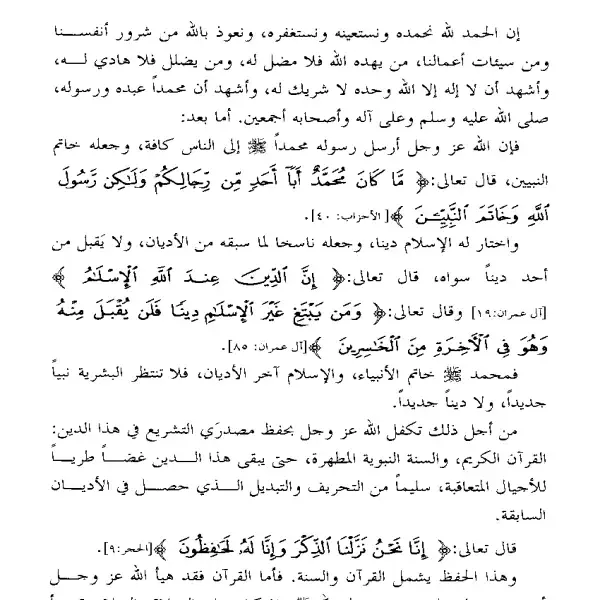 إن الحمد لله نحمده ونستعينه ونستغفره، ونعوذ بالله من شرور أنفسنا
ومن سيئات أعمالنا، من يهده الله فلا مضل له، ومن يضلل فلا هادي له،
وأشهد أن لا إله إلا الله وحده لا شريك له، وأشهد أن محمداً عبده ورسوله،
صلى الله عليه وسلم وعلى آله وأصحابه أجمعين. أما بعد:
فإن الله عز وجل أرسل رسوله محمداً ﷺ إلى الناس كافة، وجعله خاتم
النبيين، قال تعالى:﴿ مَّا كَانَ مُحَمَّدٌ أَبَآ أَحَدٍ مِّن رِّجَالِكُمْ وَلَٰكِن رَّسُولَ
ٱللَّهِ وَخَاتَمَ ٱلنَّبِيِّـۧنَ ﴾[الأحزاب: ٤٠].
واختار له الإسلام دينا، وجعله ناسخا لما سبقه من الأديان، ولا يَقبل من
أحد ديناً سواه، قال تعالى:﴿ إِنَّ ٱلدِّينَ عِندَ ٱللَّهِ ٱلْإِسْلَٰمُ ﴾
[آل عمران:١٩] وقال تعالى:﴿ وَمَن يَبْتَغِ غَيْرَ ٱلْإِسْلَٰمِ دِينًا فَلَن يُقْبَلَ مِنْهُ
وَهُوَ فِي ٱلْأَخِرَةِ مِنَ ٱلْخَٰسِرِينَ ﴾[آل عمران: ٨٥].
فمحمد ﷺ خاتم الأنبياء، والإسلام آخر الأديان، فلا تنتظر البشرية نبياً
جديداً، ولا ديناً جديداً.
من أجل ذلك تكفل الله عز وجل بحفظ مصدرَي التشريع في هذا الدين:
القرآن الكريم، والسنة النبوية المطهرة، حتى يبقى هذا الدين غضاً طرياً
للأجيال المتعاقبة، سليماً من التحريف والتبديل الذي حصل في الأديان
السابقة.
قال تعالى:﴿ إِنَّا نَحْنُ نَزَّلْنَا ٱلذِّكْرَ وَإِنَّا لَهُۥ لَحَٰفِظُونَ ﴾[الحجر:٩].
وهذا الحفظ يشمل القرآن والسنة. فأما القرآن فقد هيأ الله عز وجل